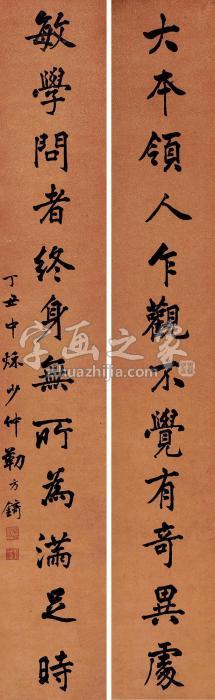 大本領人乍觀不覺有奇異處
敏學問者終身無所為滿足時
丁丑中烁少仲勒方錡
字画之家
huazhijia.com